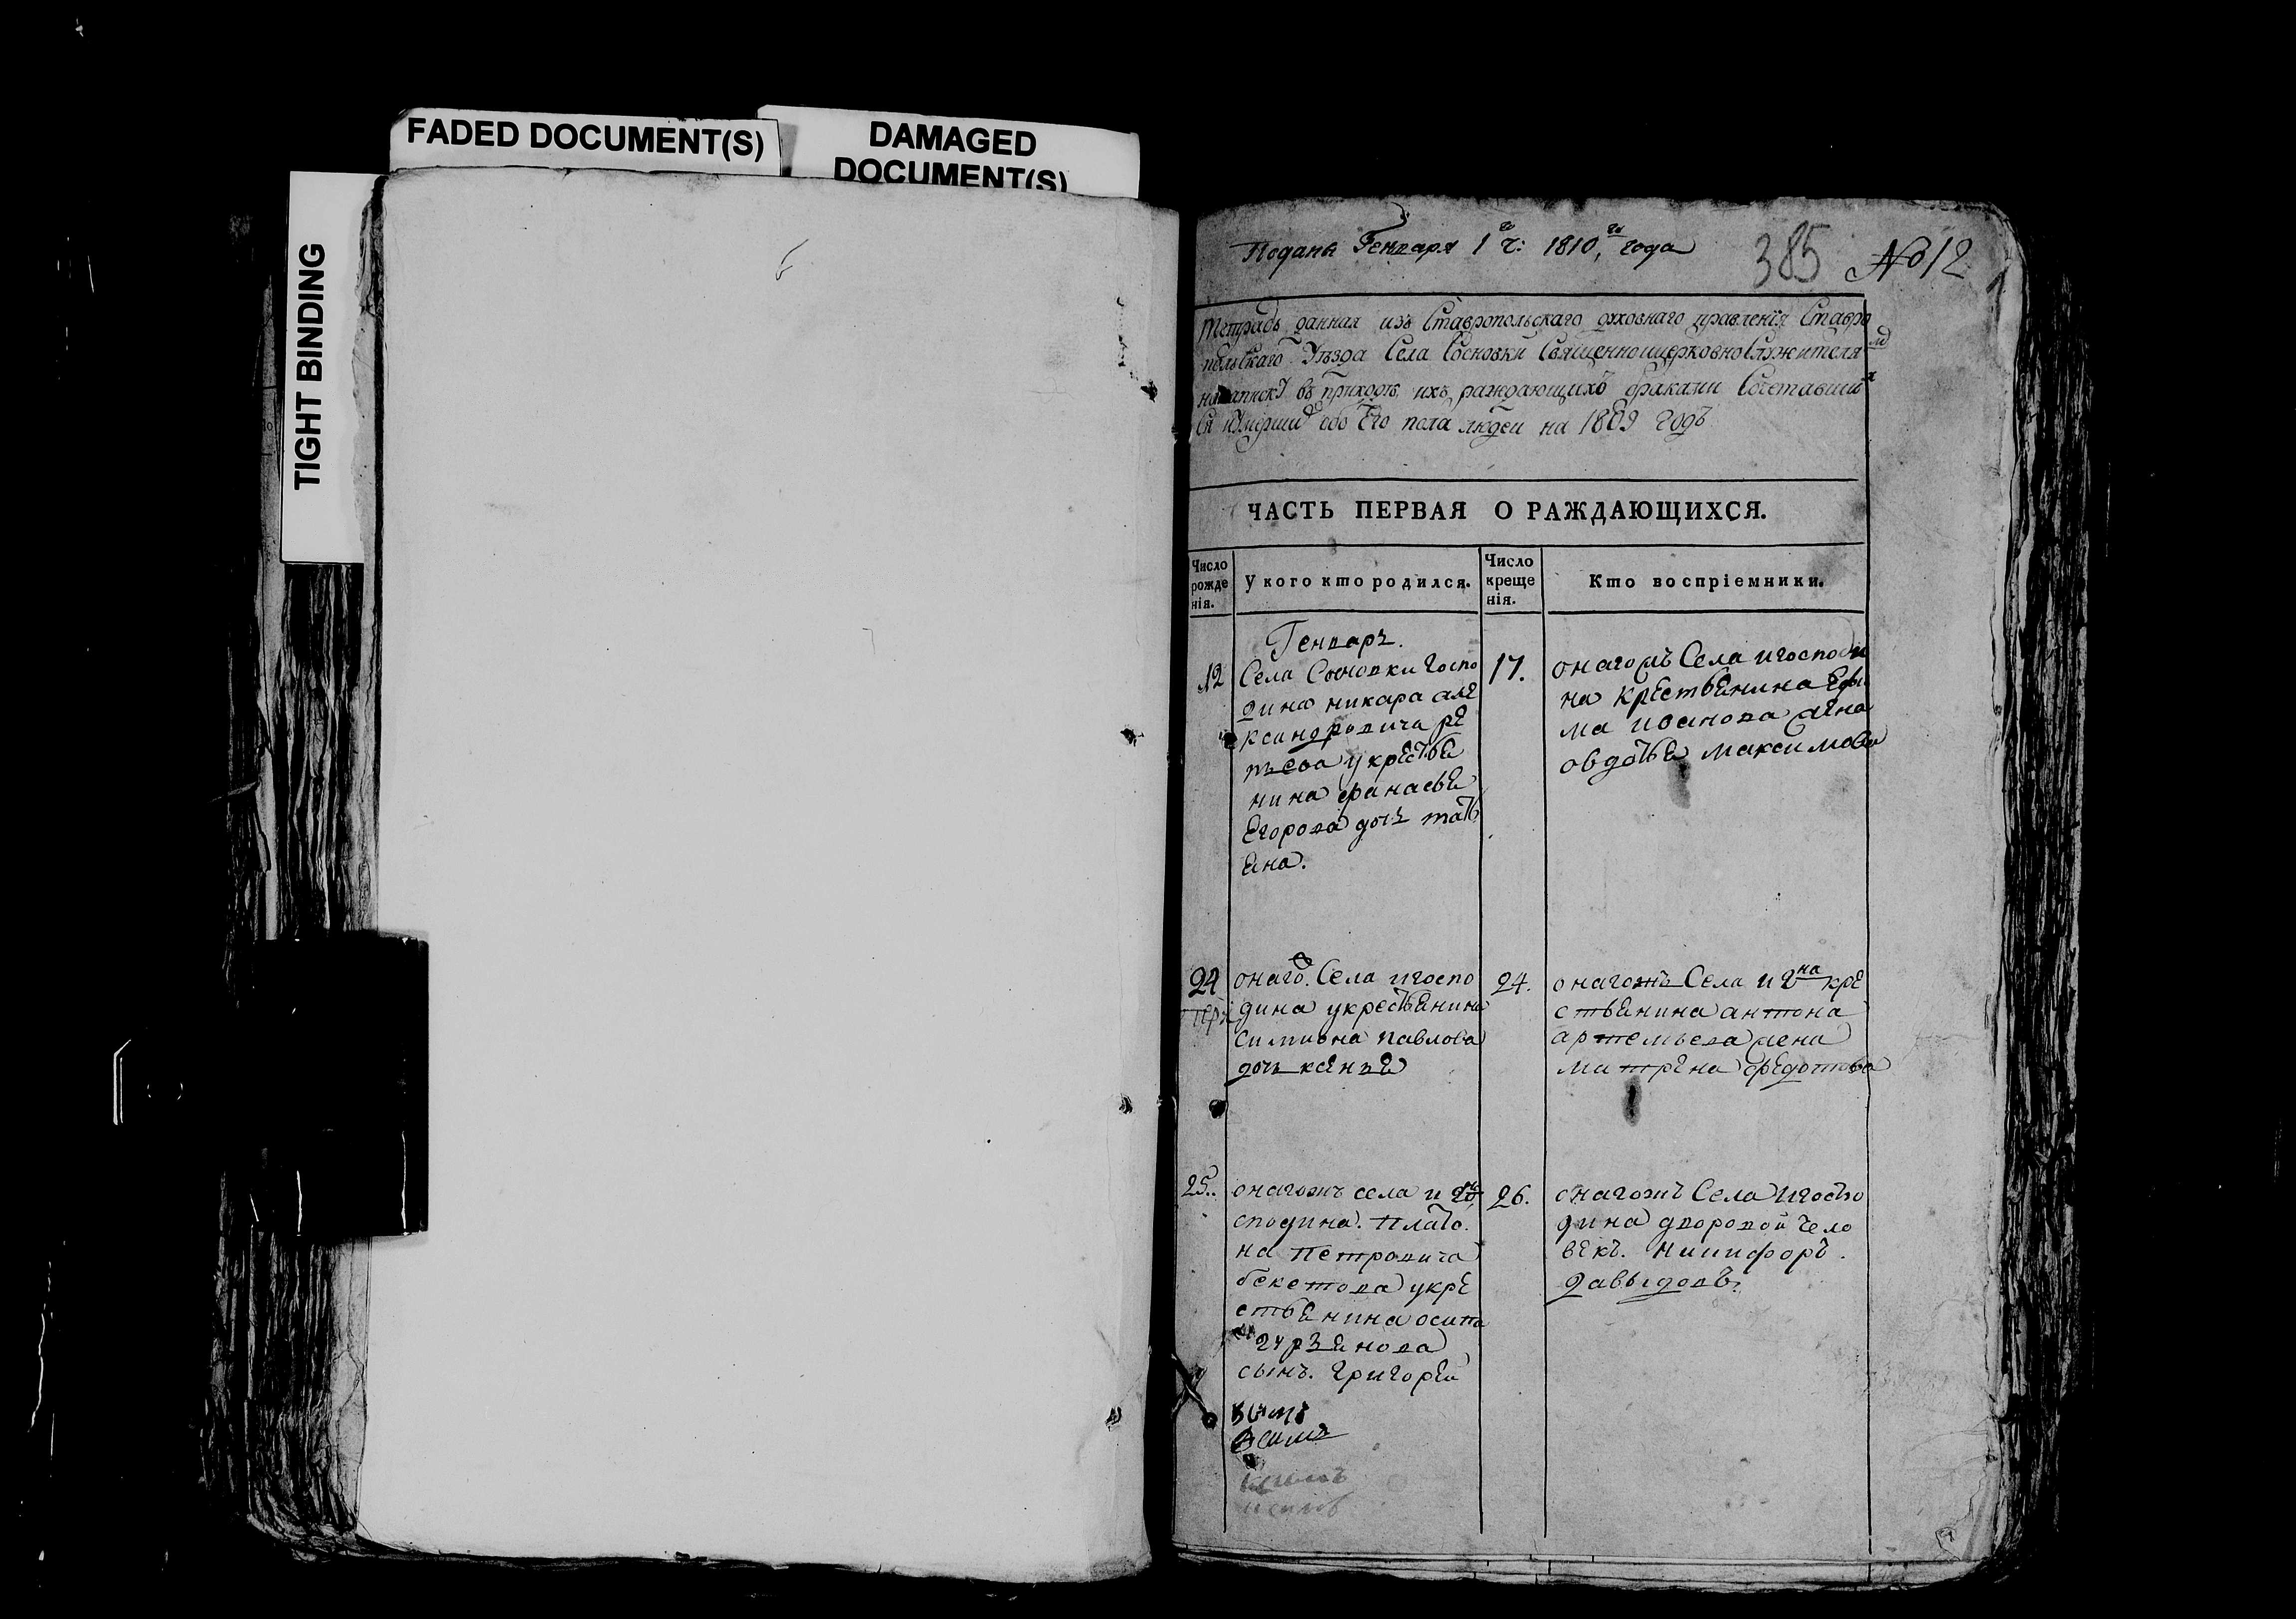 FADED DOCUMENT(S)
DAMAGED
DOCUMENT(S)
TIGHT BINDING
Поданы Генваря 1го ч: 1810,го года
385 № 12
Тетрадь данная изъ Ставропольскаго духовнаго правленiя Ставро
польскаго Уѣзда Села Сосновки Священноцерковнослужителямъ
въ приходѣ ихъ раждающихъ браками Сочетавших
ся обоего пола людеи на 1809 годъ
ЧАСТЬ ПЕРВАЯ О РАЖДАЮЩИХСЯ.
Число
рожде
нія.
У кого кто родился.
Число
креще
нія.
Кто воспріемники.
Генварь.
12
Села Сосновки Госпо
дина никара але
ксандровича ре
пьева у крестье
нина афанасье
Егорова дочь тать
ена.
17.
онагожъ Села игосподи
на крестьенина Ефи
ма иванова жена
овдотье максимова
24
онаго. Села игоспо
дина укрестьенина
симиона павлова
дочь ксенье
24.
онагожъ Села и гна кре
стьенина антона
артемьева жена
матрена федотова
25.
онагожъ села и го
сподина. плато.
на петровича
бекетова укре
стьенина осипа
гурьенова
сынъ. григорей
26.
онагожъ Села игоспо
дина дворовой чело
векъ. никифоръ.
давыдовъ.